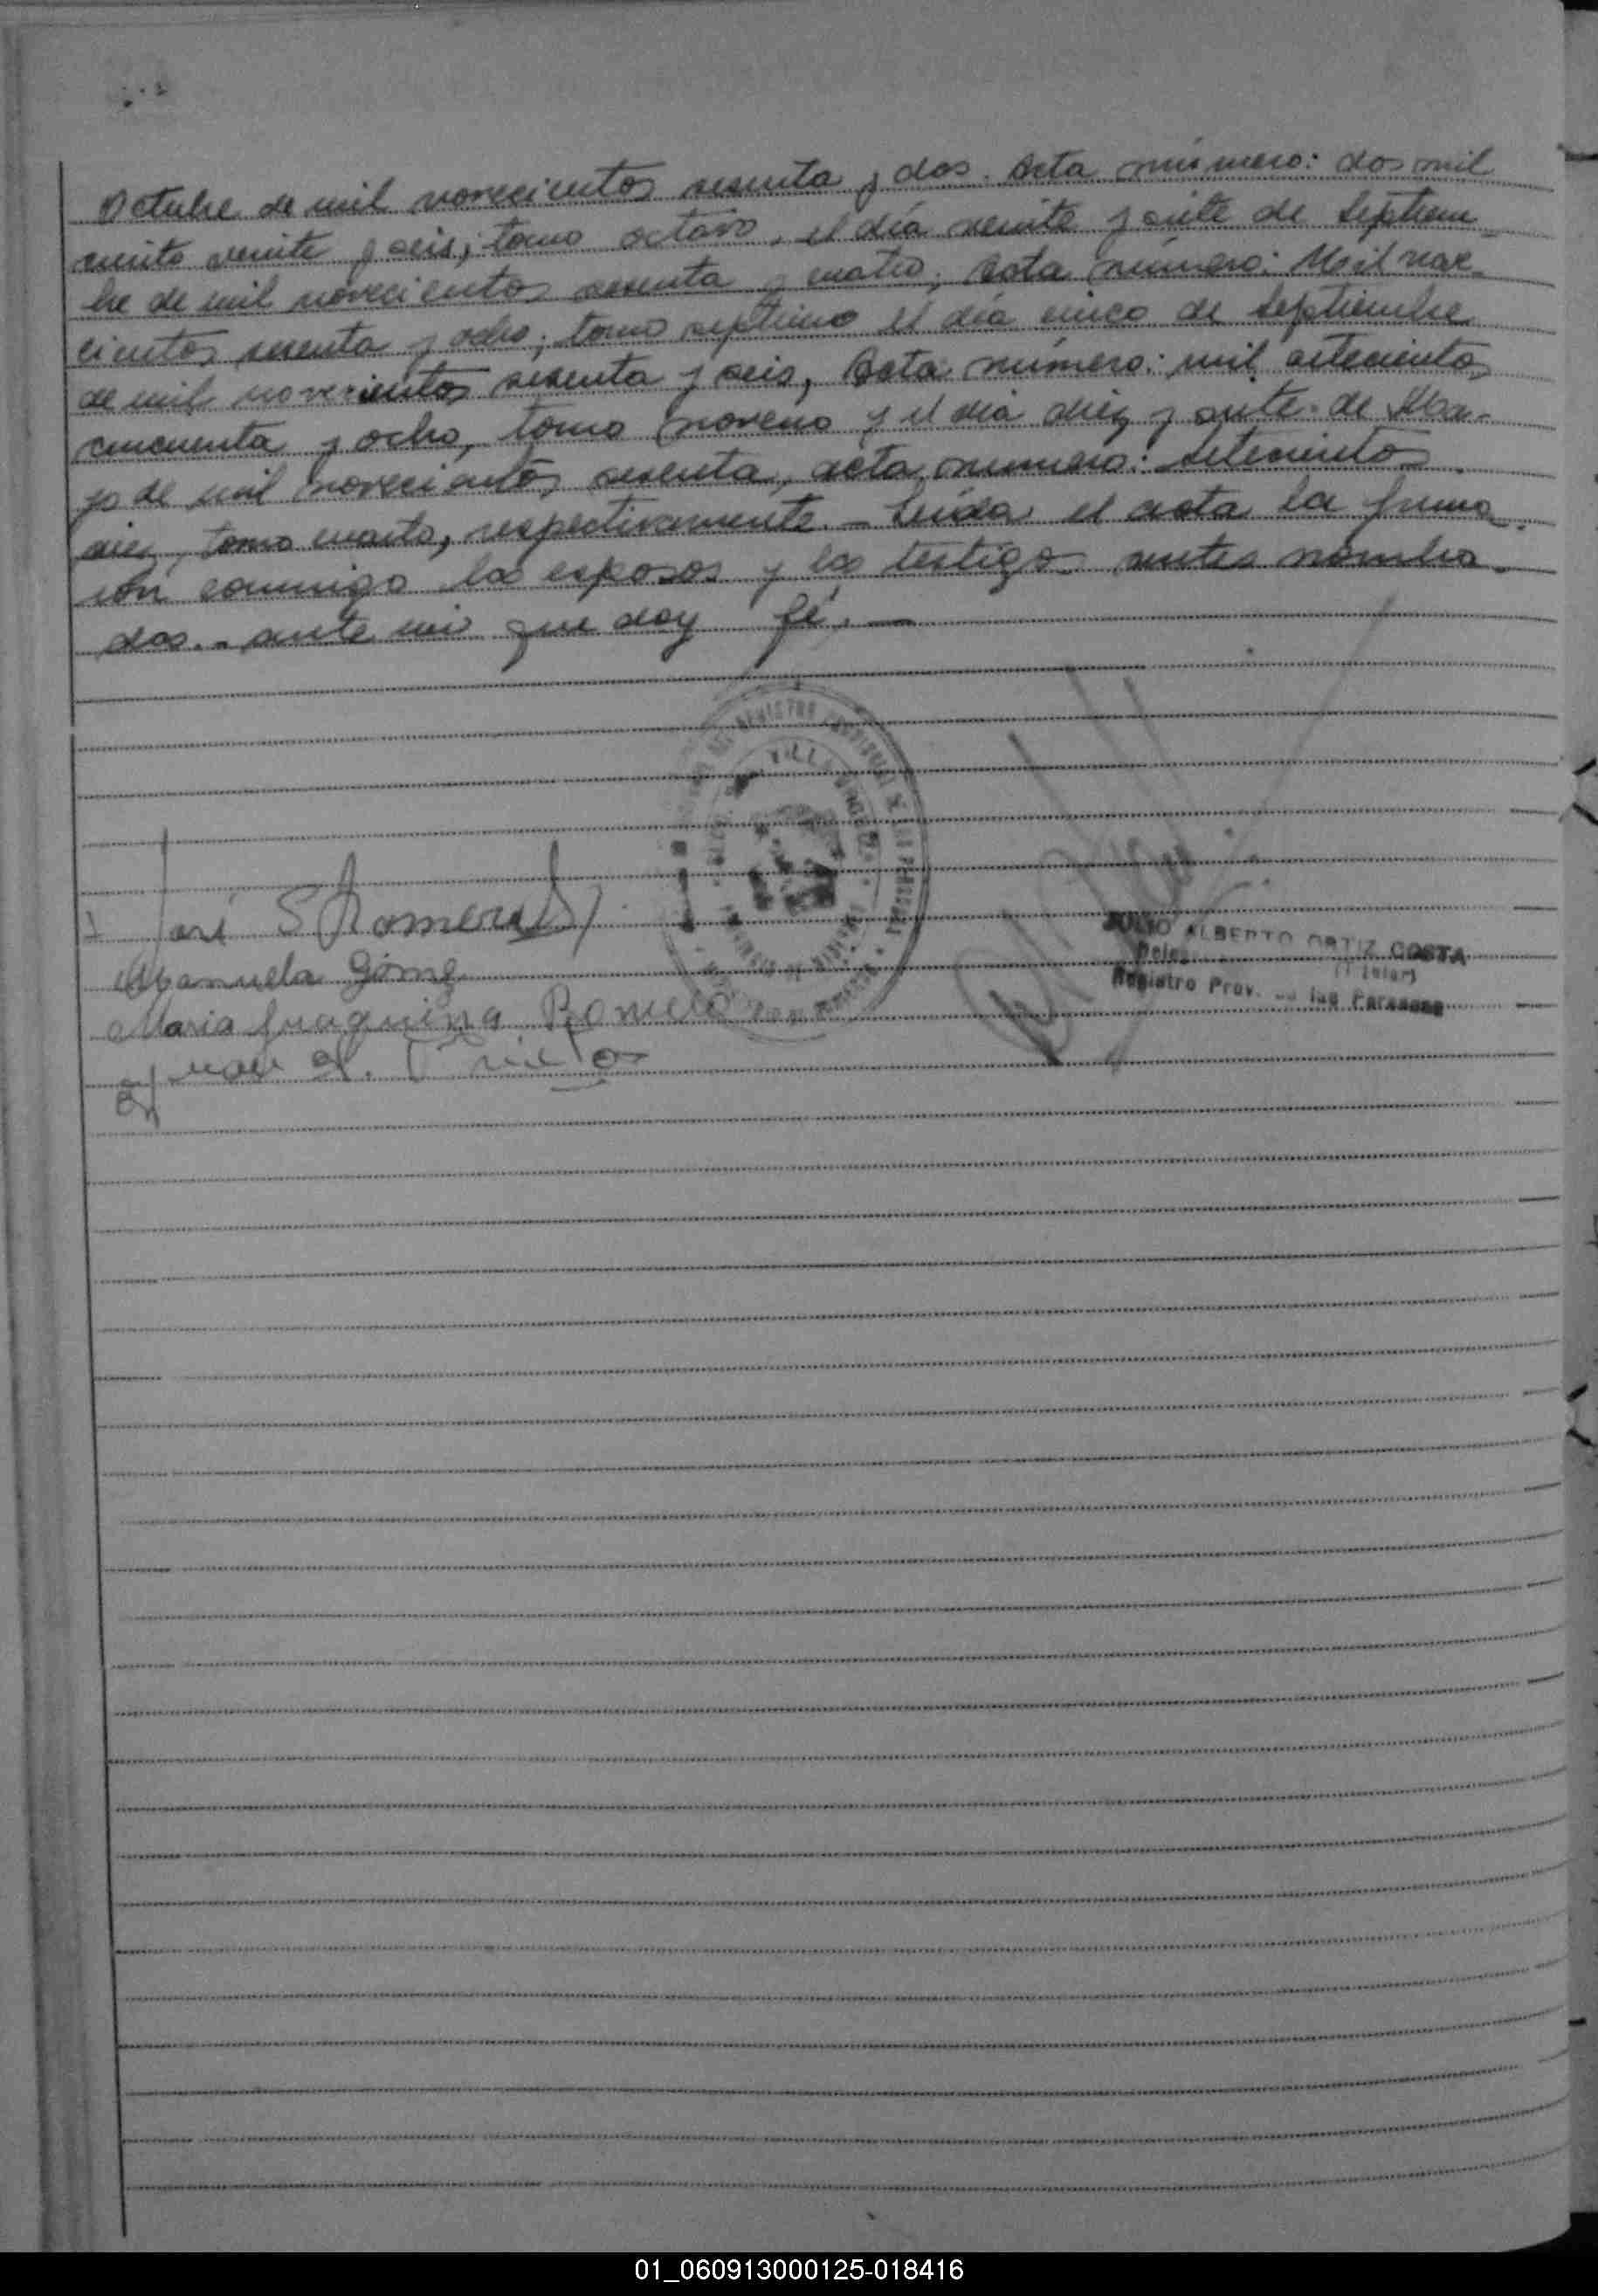 Octubre de mil novecientos sesenta y dos. Acta número: dos mil
ciento veinte y seis; tomo octavo, el día veinte y siete de Septiem-
bre de mil novecientos sesenta y cuatro; Acta número: Mil nove-
cientos sesenta y ocho; tomo septimo el día cinco de Septiembre
de mil novecientos sesenta y seis, Acta número: mil setecientos
cincuenta y ocho, tomo noveno y el día diez y siete de Ma-
yo de mil novecientos sesenta, acta número: setecientos
diez, tomo cuarto, respectivamente. - Leída el acta la firma-
ron conmigo los esposos y los testigos antes nombra-
dos. - ante mi que doy fé. —
REGISTRO PROVINCIAL DE LAS PERSONAS
José S Romero
Manuela Gómez
JULIO ALBERTO ORTIZ COSTA
(Titular)
Registro Prov. de las Personas
Maria Juaquina Romero
Juan
01_060913000125-018416